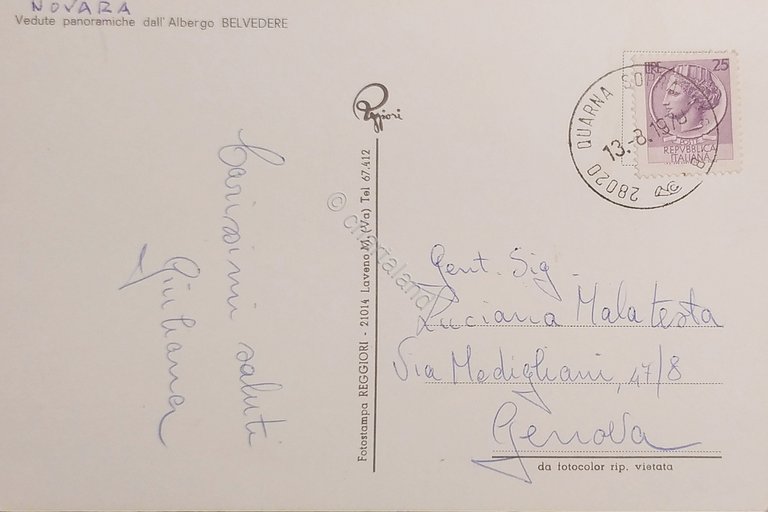 NOVARA
Vedute panoramiche dall' Albergo BELVEDERE
Carissimi saluti
Giuliana
Reggiori
Fotostampa REGGIORI - 21014 Laveno M. (Va) Tel 67.412
© cartaland
LIRE 25
POSTE
REPVBBLICA
ITALIANA
28020 QUARNA SO
13.-8.19
Gent. Sig.
Luciana Malatesta
Via Modigliani, 47/8
Genova
da fotocolor rip. vietata